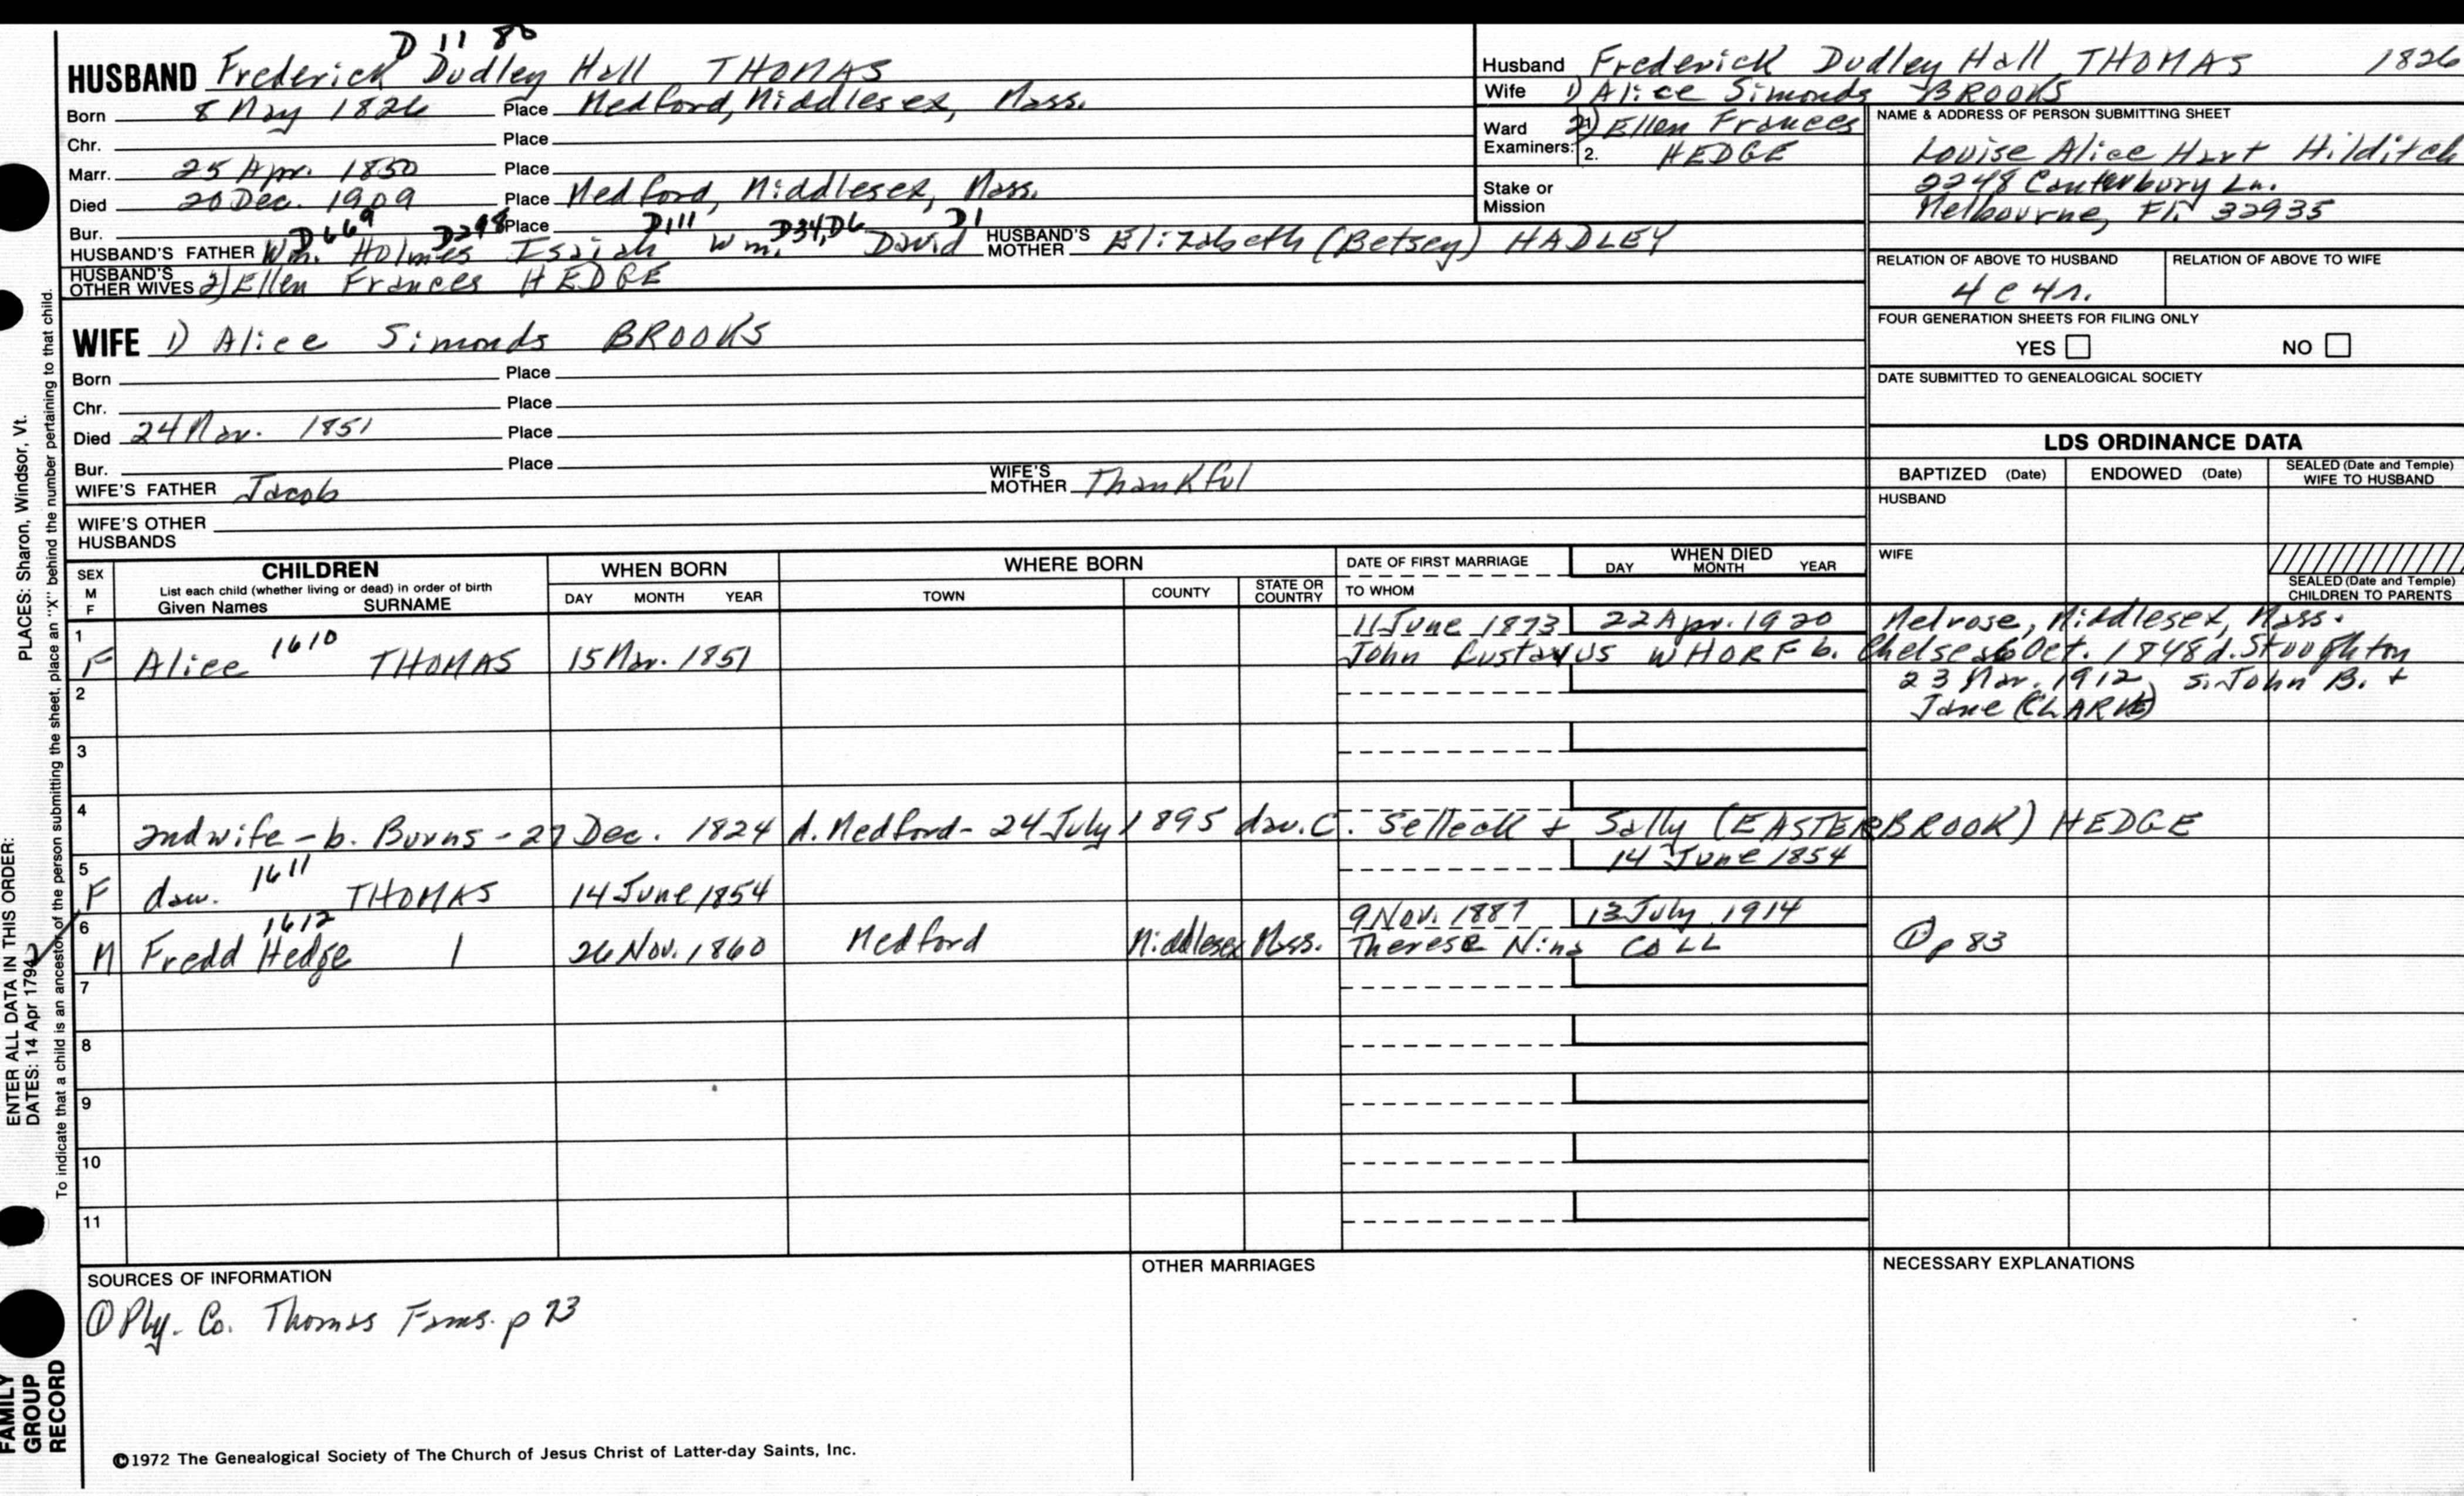 D 11 80
HUSBAND Frederick Dudley Hall THOMAS
Born 8 May 1826 Place Medford, Middlesex, Mass.
Chr. Place
Marr. 25 Apr. 1850 Place
Died 20 Dec. 1909 Place Medford, Middlesex, Mass.
Bur. Place
D669 D298 D111 D34, D6 D1
HUSBAND'S FATHER Wm. Holmes Isaiah Wm. David HUSBAND'S MOTHER Elizabeth (Betsey) HADLEY
HUSBAND'S OTHER WIVES 2) Ellen Frances HEDGE
WIFE 1) Alice Simonds BROOKS
Born Place
Chr. Place
Died 24 Mar. 1851 Place
Bur. Place
WIFE'S FATHER Jacob WIFE'S MOTHER Thankful
WIFE'S OTHER HUSBANDS
Husband Frederick Dudley Hall THOMAS 1826
Wife 1) Alice Simonds BROOKS
Ward Examiners: 2) Ellen Frances
2. HEDGE
Stake or Mission
NAME & ADDRESS OF PERSON SUBMITTING SHEET
Louise Alice Hart Hilditch
2248 Canterbury Ln.
Melbourne, Fl. 32935
RELATION OF ABOVE TO HUSBAND RELATION OF ABOVE TO WIFE
4 c 4 r.
FOUR GENERATION SHEETS FOR FILING ONLY
YES NO
DATE SUBMITTED TO GENEALOGICAL SOCIETY
LDS ORDINANCE DATA
BAPTIZED (Date) ENDOWED (Date) SEALED (Date and Temple) WIFE TO HUSBAND
HUSBAND
WIFE
SEALED (Date and Temple) CHILDREN TO PARENTS
SEX M F
CHILDREN
List each child (whether living or dead) in order of birth
Given Names SURNAME
WHEN BORN
DAY MONTH YEAR
WHERE BORN
TOWN COUNTY STATE OR COUNTRY
DATE OF FIRST MARRIAGE
TO WHOM
WHEN DIED
DAY MONTH YEAR
1 1610 11 June 1873 22 Apr. 1920 Melrose, Middlesex, Mass.
F Alice THOMAS 15 Mar. 1851 John Gustavus WHORF b. Chelsea 6 Oct. 1848 d. Stoughton
2 23 Mar. 1912, s. John B. +
Jane (CLARK)
3
4
2nd wife - b. Burns - 27 Dec. 1824 d. Medford - 24 July 1895 dau. C. Selleck + Sally (EASTERBROOK) HEDGE
5 1611 14 June 1854
F dau. THOMAS 14 June 1854
6 1612 9 Nov. 1887 13 July 1914
M Fredd Hedge 1 26 Nov. 1860 Medford Middlesex Mass. Therese Nina COLL ① p 83
7
8
9
10
11
SOURCES OF INFORMATION
① Ply. Co. Thomas Fams. p 73
OTHER MARRIAGES
NECESSARY EXPLANATIONS
©1972 The Genealogical Society of The Church of Jesus Christ of Latter-day Saints, Inc.
ENTER ALL DATA IN THIS ORDER:
DATES: 14 Apr 1794 PLACES: Sharon, Windsor, Vt.
To indicate that a child is an ancestor of the person submitting the sheet, place an "X" behind the number pertaining to that child.
FAMILY GROUP RECORD